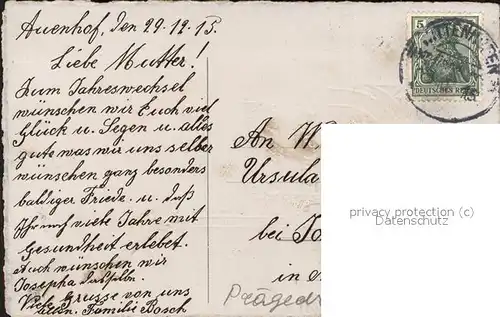 Auenhof, den 29.12.15.
Liebe Mutter!
Zum Jahreswechsel
wünschen wir Euch viel
Glück u. Segen u. alles
gute was wir uns selber
wünschen ganz besonders
baldiger Friede. u. daß
Ihr noch viele Jahre mit
Gesundheit erlebet.
Auch wünschen wir
Josepha
Viele Grüsse von uns
allen. Familie Bosch
An W
Ursula
bei
in
Prägedr
5
DEUTSCHES REICH
privacy protection (c)
Datenschutz